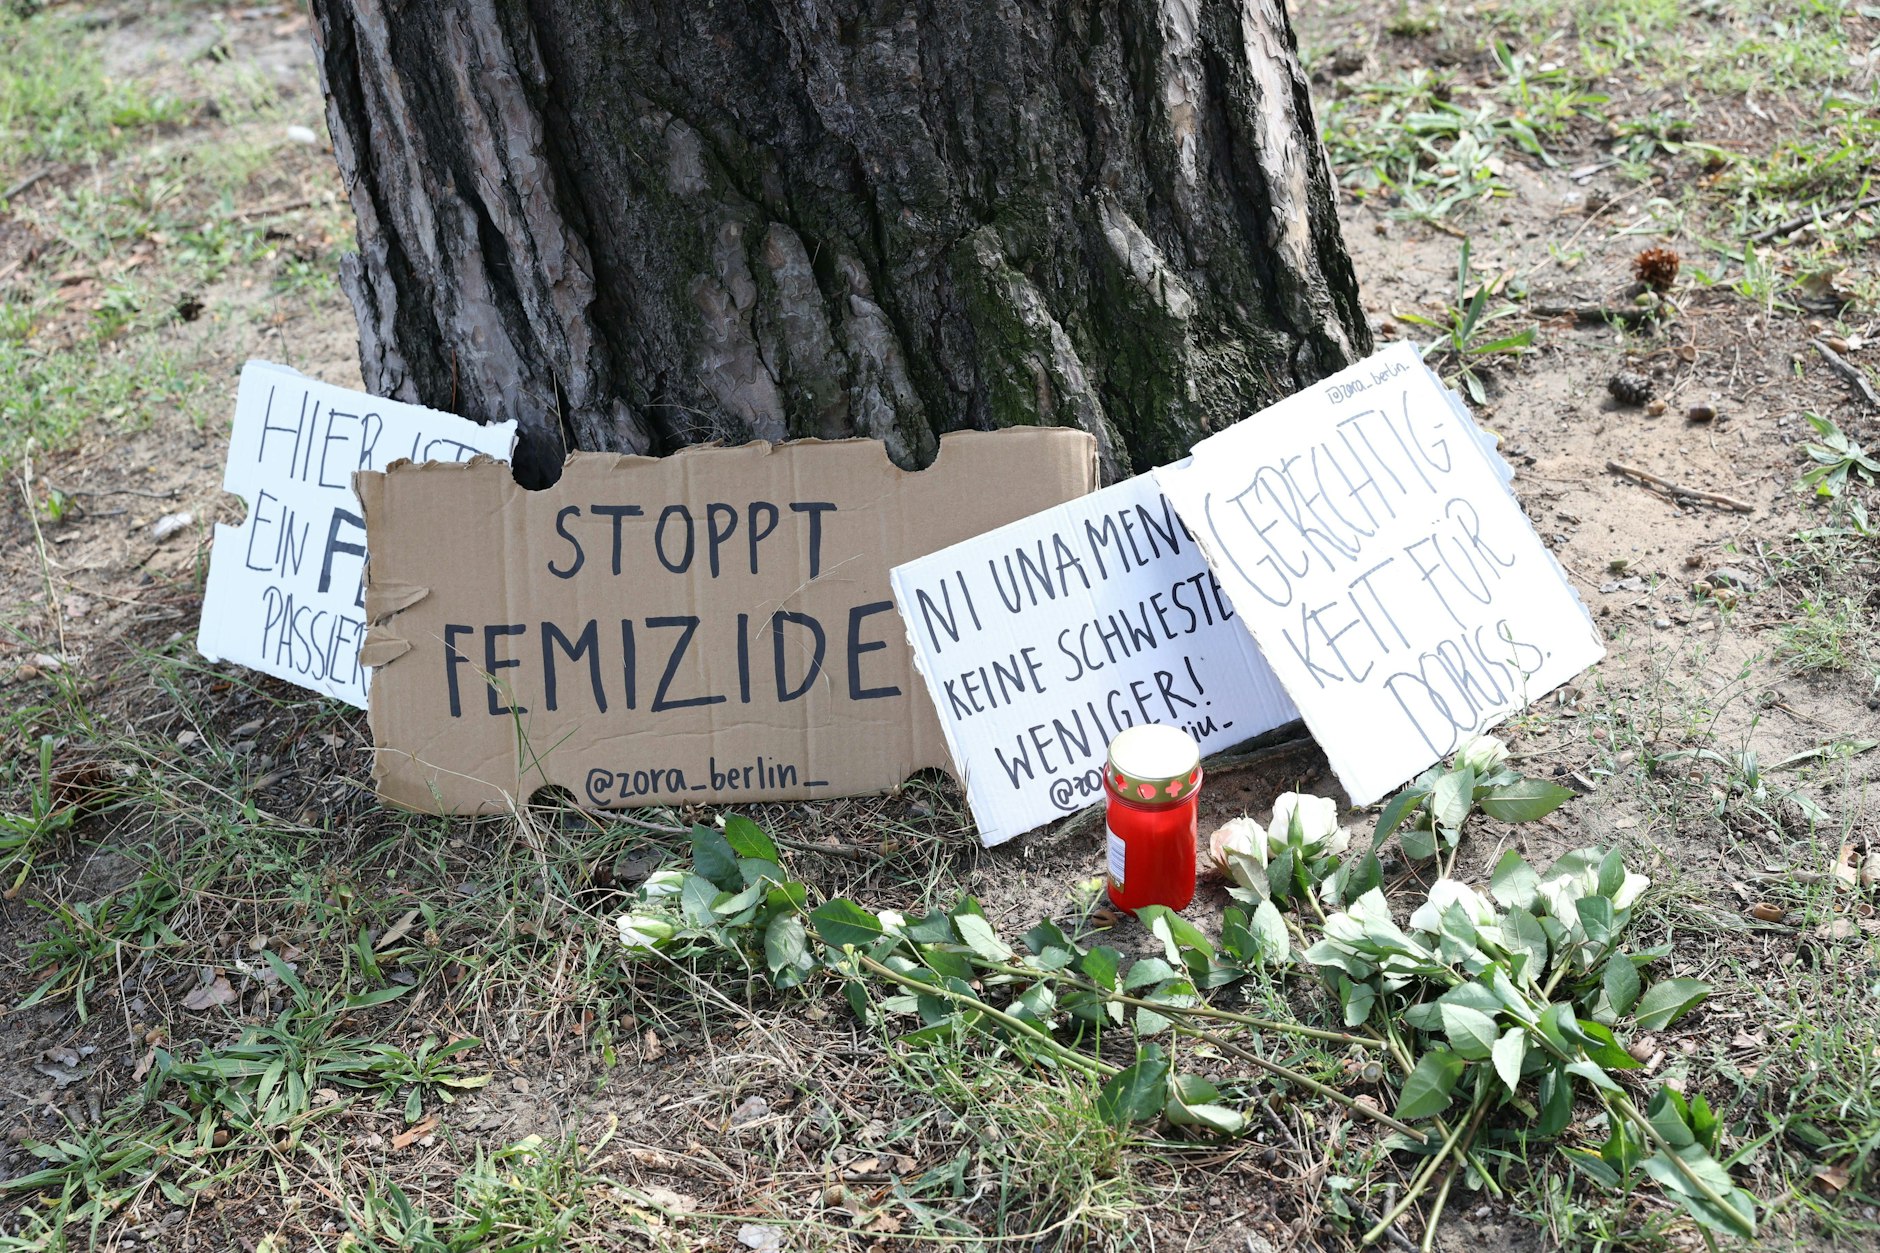 HIER IST
EIN
PASSIER
STOPPT
FEMIZIDE
@zora_berlin_
NI UNA MEN
KEINE SCHWESTE
WENIGER!
@zo
@zora_berlin_
GERECHTIG-
KEIT FÜR
DORISS.